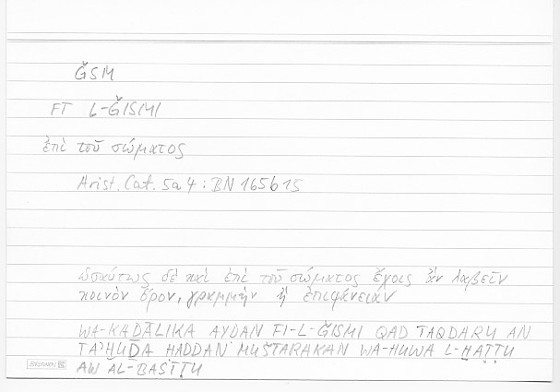 ǦSM
FI L-ǦISMI
ἐπὶ τοῦ σώματος
Arist. Cat. 5a4 : BN 165b15
ὡσαύτως δὲ καὶ ἐπὶ τοῦ σώματος ἔχοις ἂν λαβεῖν
κοινὸν ὅρον, γραμμὴν ἢ ἐπιφάνειαν
WA-KAḎĀLIKA AYḌAN FI-L-ǦISMI QAD TAQDARU AN
TA'ḪUḎA ḤADDAN MUŠTARAKAN WA-HUWA L-ḪAṬṬU
AW AL-BASĪṬU